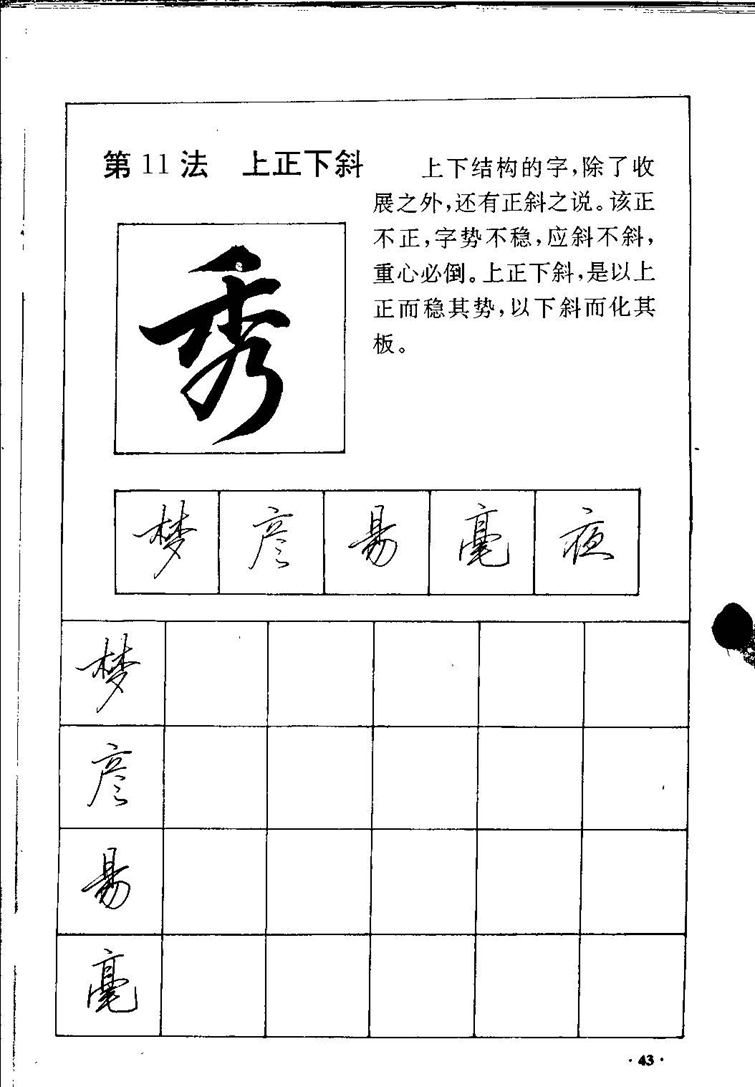 第11法 上正下斜
上下结构的字,除了收
展之外,还有正斜之说。该正
不正,字势不稳,应斜不斜,
重心必倒。上正下斜,是以上
正而稳其势,以下斜而化其
板。
秀
梦 彦 易 毫 夜
梦
彦
易
毫
·43·